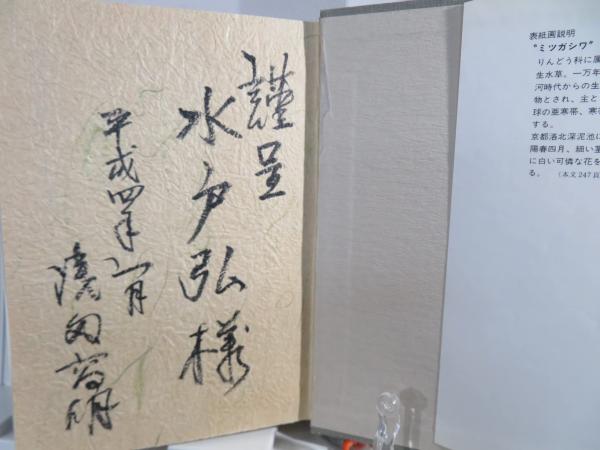 謹呈
水戸弘様
平成四年
表紙画説明
"ミツガシワ"
りんどう科に属
生水草。一万年
河時代からの生
物とされ、主と
球の亜寒帯、寒
する。
京都洛北深泥池に
陽春四月、細い茎
に白い可憐な花を
る。 (本文247頁